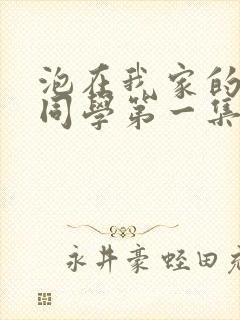 泡在我家的
同學第一集
永井豪 蛭田充